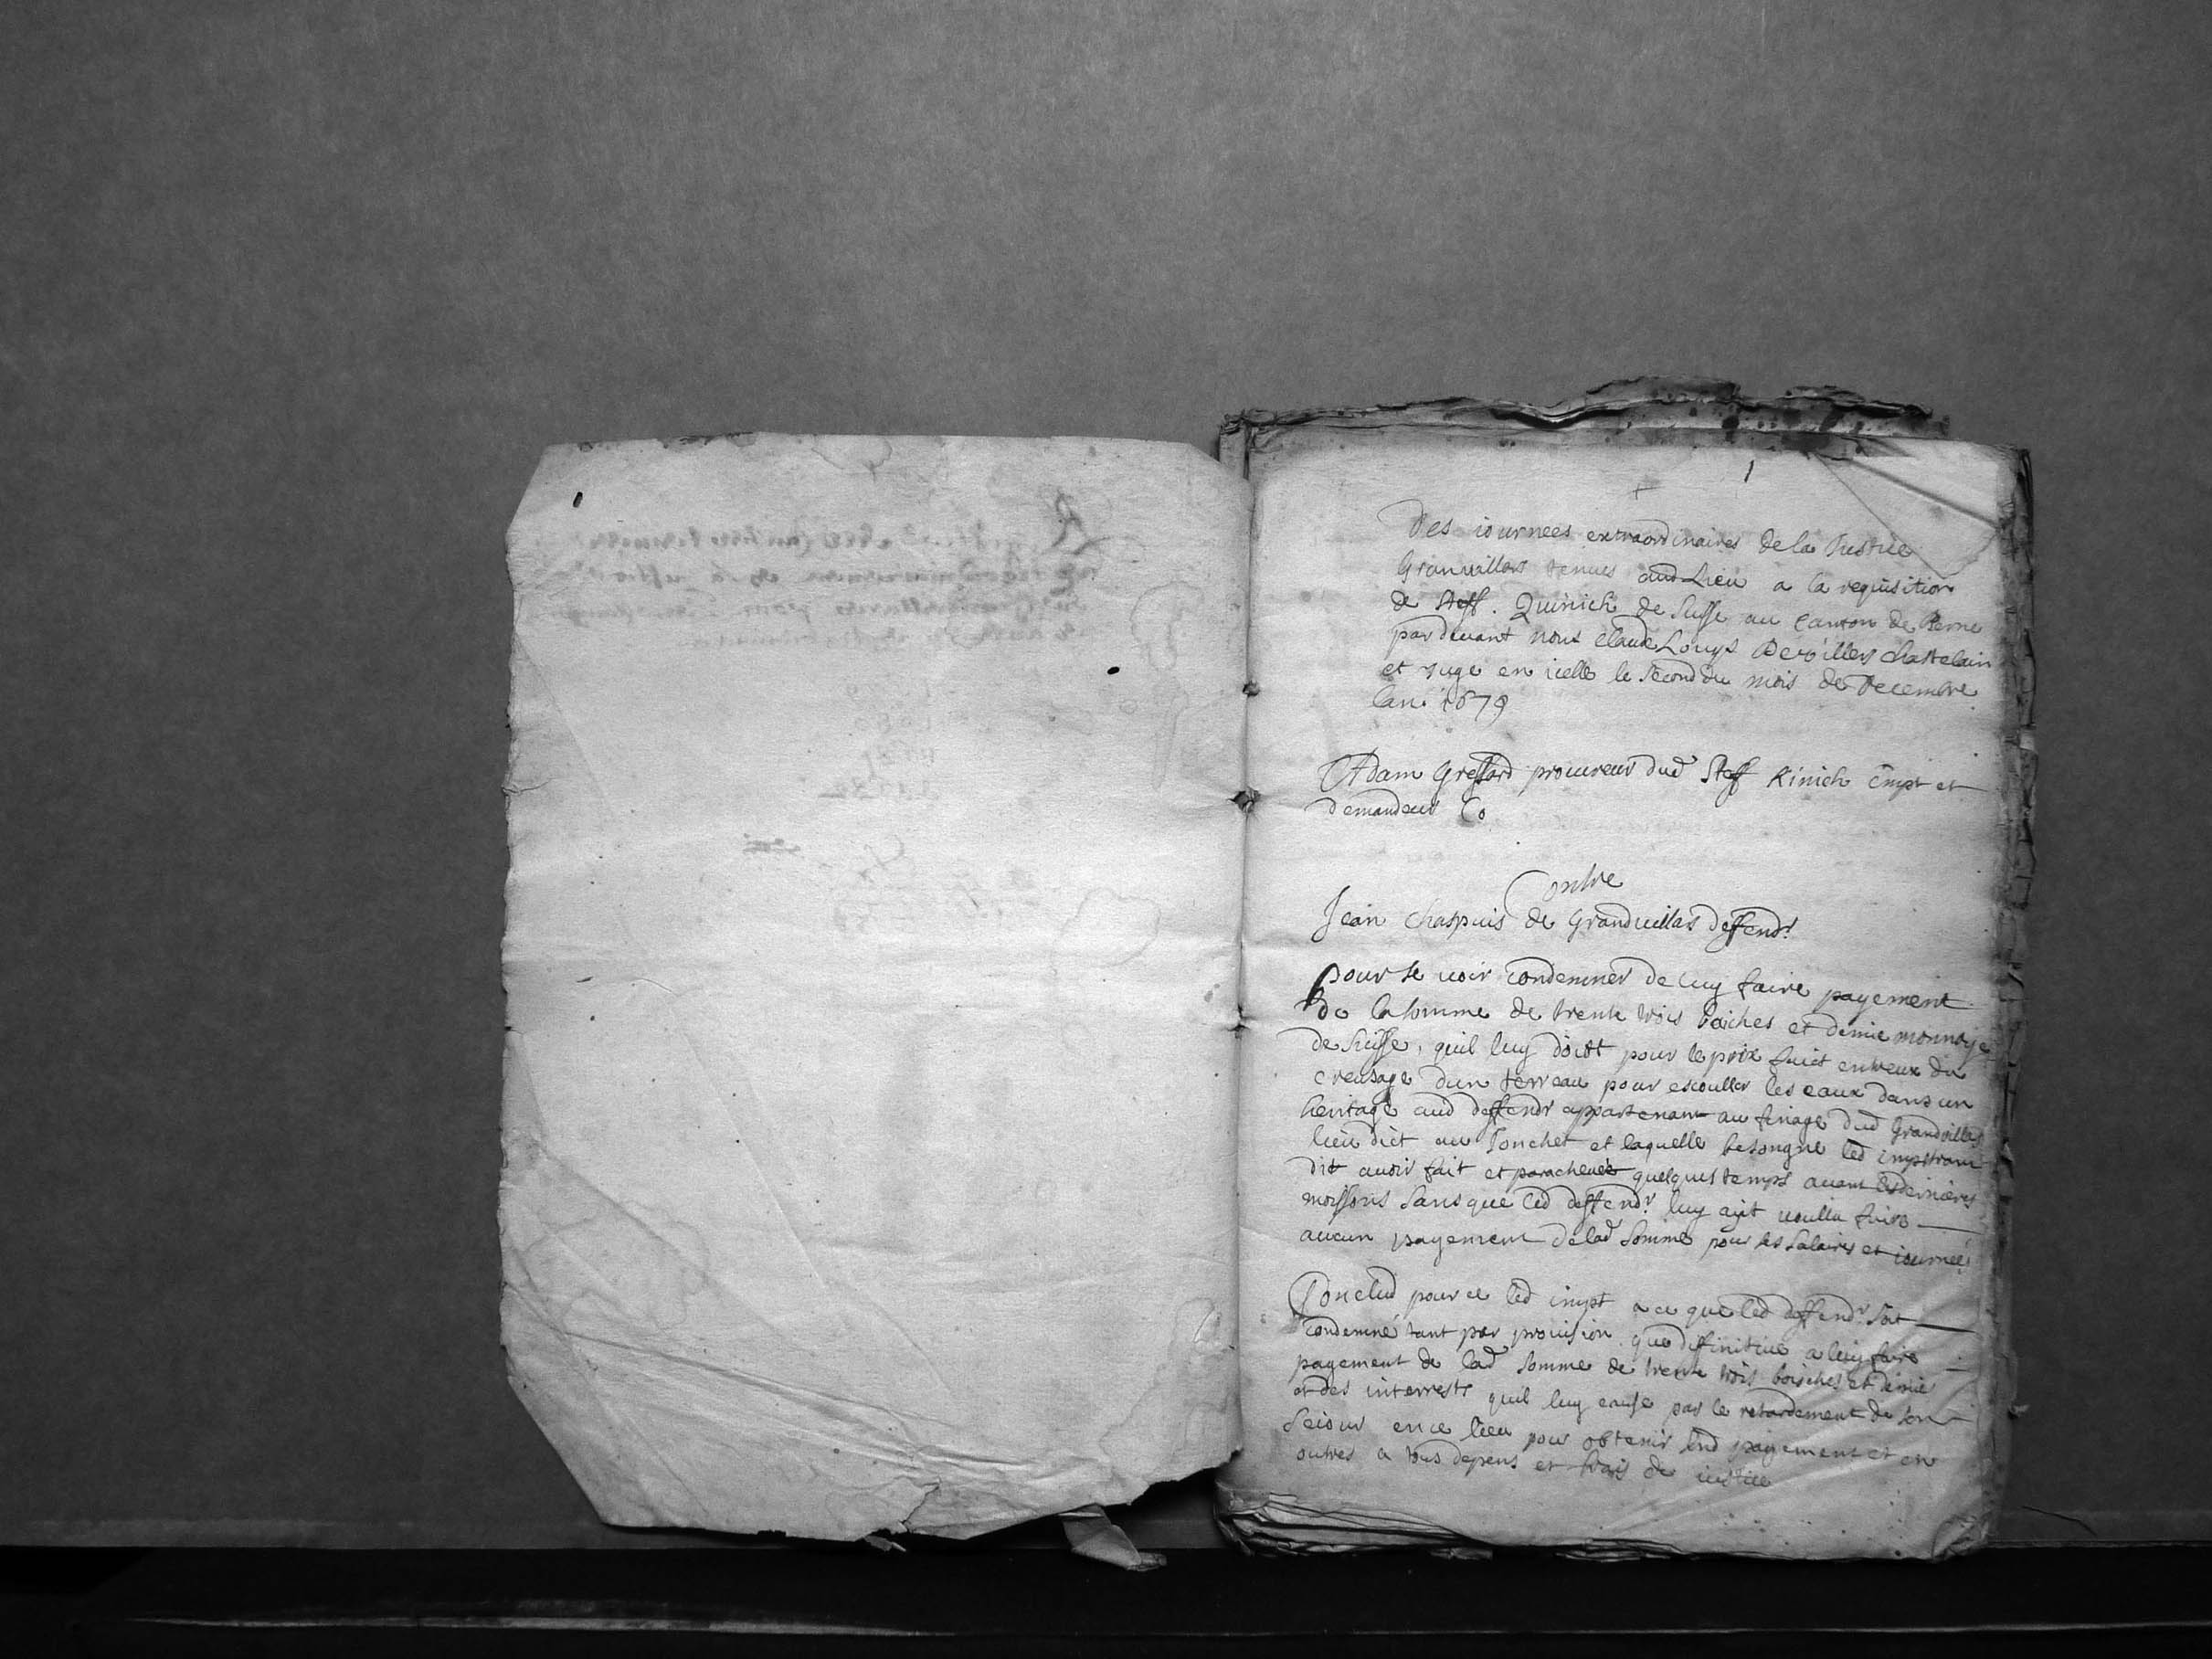 1
Des iournees extraordinaires de la Justice
Granvillars tenues aud Lieu a la requisition
de Steff. Quinich de Suisse au Canton de Berne
par devant nous Claude Louys Devillers Chastelain
et Juge en icelle le second du mois de Decembre
lan 1679
Adam Gressard procureur dud Steff Kinich Impt et
demandeur Co
Contre
Jean Chaspuis de Grandvillars deffendr
Pour se voir condemner de luy faire payement
de la somme de trente trois baiches et demie monnoye
de Suisse, quil luy doibt pour le prix faict entreux du
creusage dun terreau pour escouller les eaux dans un
heritage aud deffendr appartenant au finage dud Grandvillars
lieu dict au Jonchet et laquelle besongne led impetrant
dit avoir fait et parachevée quelques temps avant les dernieres
moissons sans que led deffendr luy ayt voullu faire
aucun payement de lad somme pour ses salaires et iournees
Conclud pour ce led impt a ce que led deffendr soit
condemné tant par provision que diffinitive a luy faire
payement de lad somme de trente trois baiches et demie
et des interrests quil luy cause par le retardement de son
seiour en ce lieu pour obtenir sond payement et en
outres a tous depens et frais de iustice